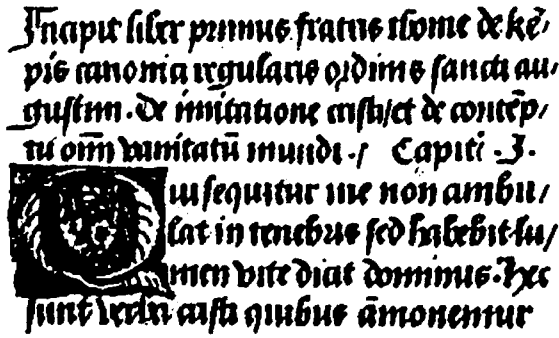 Incipit liber primus fratris thome de kē/
pis canonici regularis ordinis sancti au/
gustini. De imitatione cristi/et de contēp/
tu oīm vanitatū mundi./ Capitl .I.
Qui sequitur me non ambu/
lat in tenebris sed habebit lu/
men vite dicit dominus. Hec
sunt verba cristi quibus āmonemur